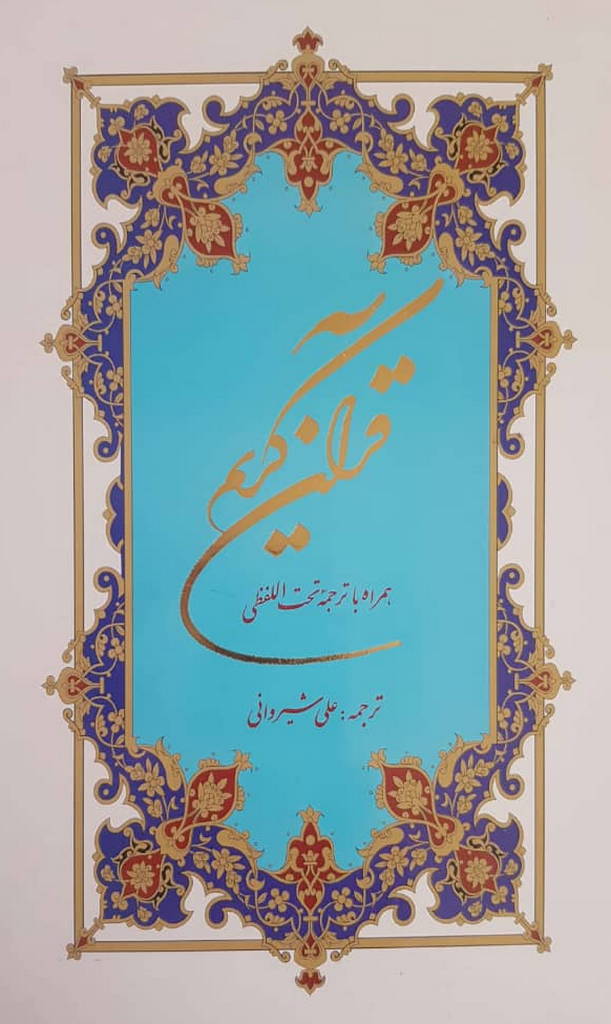 قرآن کریم
همراه با ترجمهٔ تحت اللفظی
ترجمه: علی شیروانی